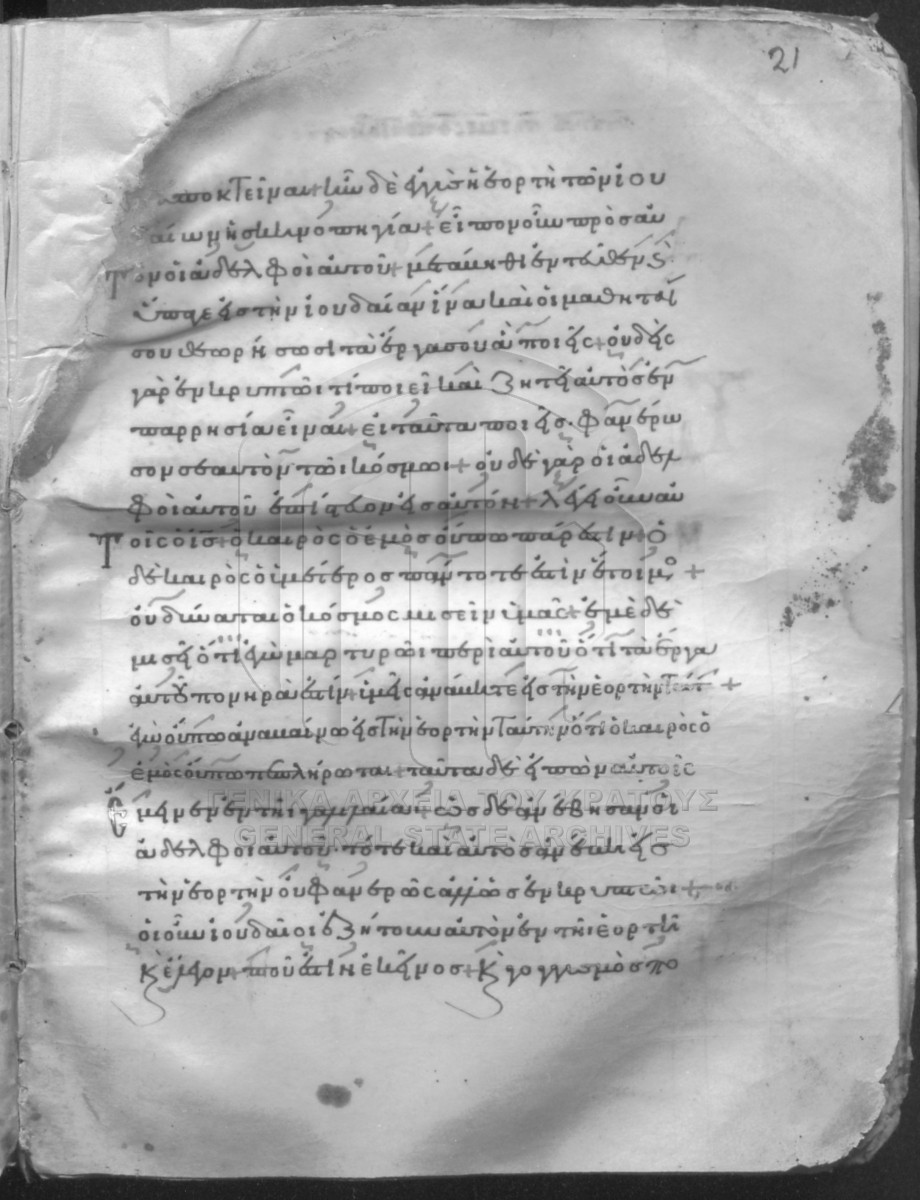 21
ἀποκτεῖναι+ ἦν δὲ ἐγγὺς ἡ ἑορτὴ τῶν ἰου
δαίων ἡ σκηνοπηγία+ εἶπον οὖν πρὸς αὐ
τὸν οἱ ἀδελφοὶ αὐτοῦ+ μετάβηθι ἐντεῦθεν ϗ
ὕπαγε εἰς τὴν ἰουδαίαν ἵνα καὶ οἱ μαθηταί
σου θεωρήσωσι τὰ ἔργα σου ἃ ποιεῖς+ οὐδεὶς
γὰρ ἐν κρυπτῶι τί ποιεῖ καὶ ζητεῖ αὐτὸς ἐν
παρρησία εἶναι+ εἰ ταῦτα ποιεῖς· φανέρω
σον σεαυτὸν τῶι κόσμωι+ οὐδὲ γὰρ οἱ ἀδελ
φοὶ αὐτοῦ ἐπίστευον εἰς αὐτόν+ λέγει οὖν αὐ
τοῖς ὁ ις+ ὁ καιρὸς ὁ ἐμὸς οὔπω πάρεστιν+ ὁ
δὲ καιρὸς ὁ ὑμέτερος πάντοτε ἐστὶν ἕτοιμος+
οὐ δύναται ὁ κόσμος μισεῖν ὑμᾶς+ ἐμὲ δὲ
μισεῖ ὅτι ἐγὼ μαρτυρῶι περὶ αὐτοῦ ὅτι τὰ ἔργα
αὐτοῦ πονηρὰ ἐστίν+ ὑμεῖς ἀνάβητε εἰς τὴν ἑορτὴν +
ἐγὼ οὔπω ἀναβαίνω εἰς τὴν ἑορτὴν ταύτην ὅτι ὁ καιρὸς ὁ
ἐμὸς οὔπω πεπλήρωται+ ταῦτα δὲ εἰπὼν αὐτοῖς
ἔμεινεν ἐν τῆι γαλιλαία+ ὡς δὲ ἀνέβησαν οἱ
ἀδελφοὶ αὐτοῦ· τότε καὶ αὐτὸς ἀνέβη εἰς
τὴν ἑορτὴν οὐ φανερῶς ἀλλ' ὡς ἐν κρυπτῶι+
οἱ οὖν ἰουδαῖοι ἐζήτουν αὐτὸν ἐν τῆι ἑορτῆι
ϗ ἔλεγον+ ποῦ ἐστὶν ἐκεῖνος+ ϗ γογγυσμὸς πο
ΓΕΝΙΚΑ ΑΡΧΕΙΑ ΤΟΥ ΚΡΑΤΟΥΣ
GENERAL STATE ARCHIVES